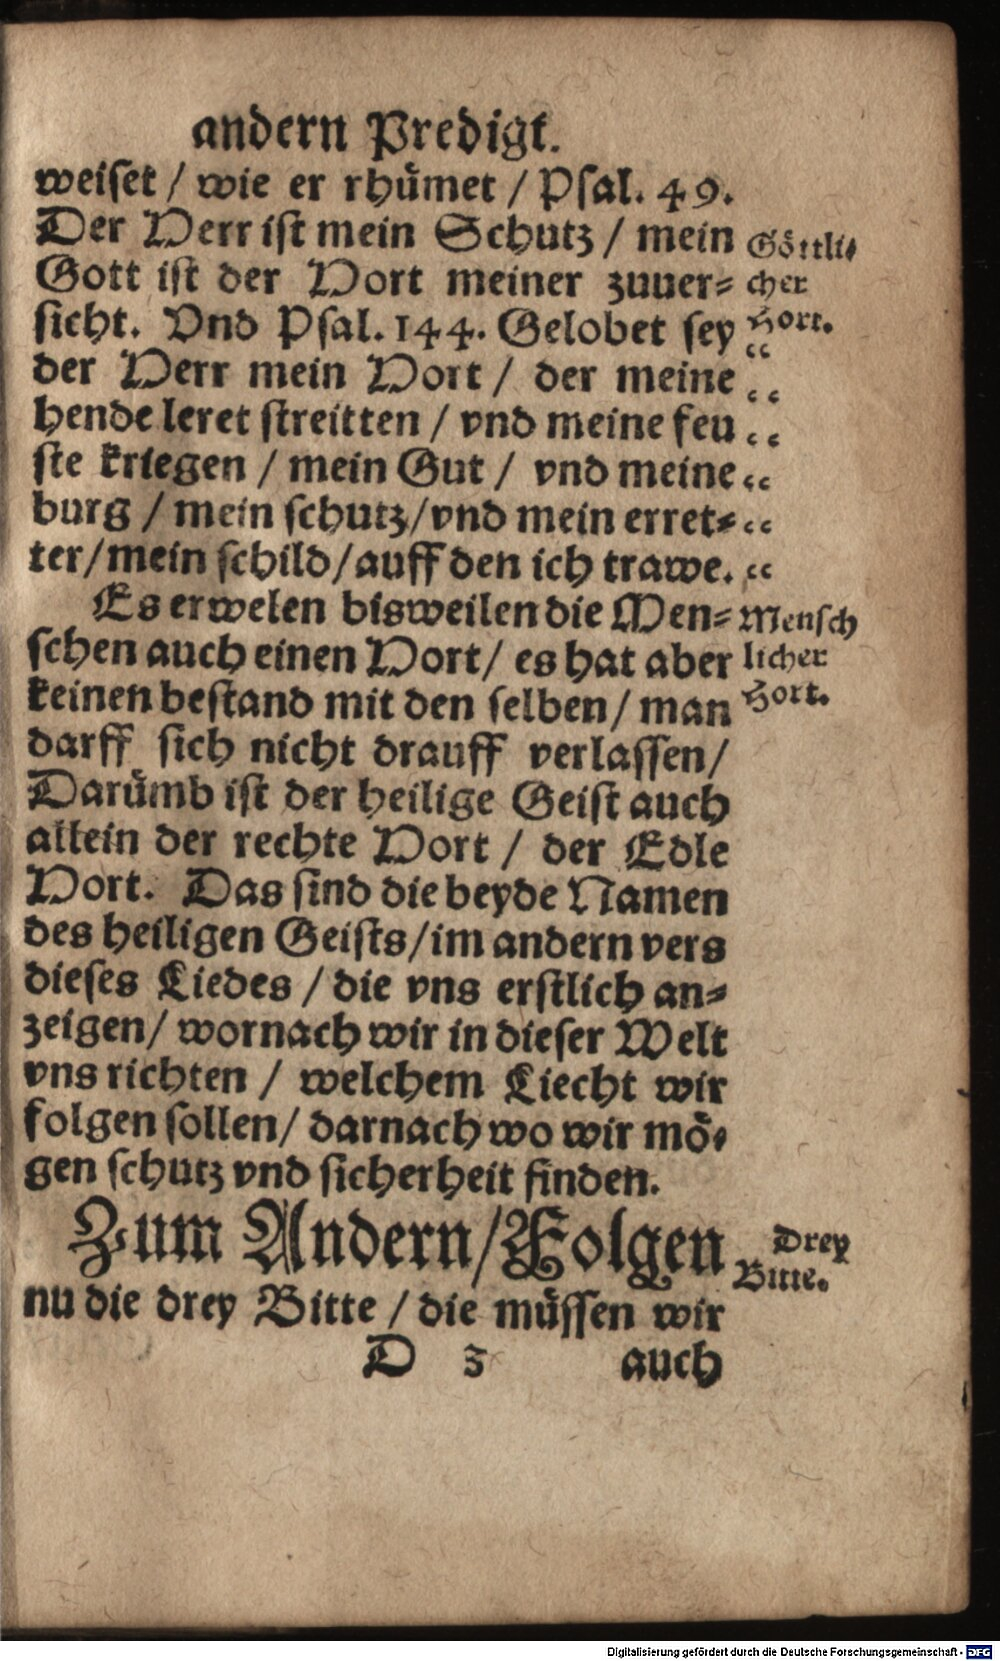 andern Predigt.
weiset / wie er rhůmet / Psal. 49.
Der Herr ist mein Schutz / mein
Gott ist der Hort meiner zuuer-
sicht. Vnd Psal. 144. Gelobet sey
der Herr mein Hort / der meine
hende leret streitten / vnd meine feu
ste kriegen / mein Gut / vnd meine
burg / mein schutz/vnd mein erret-
ter/mein schild/auff den ich trawe.
Es erwelen bisweilen die Men-
schen auch einen Hort/ es hat aber
keinen bestand mit den selben/ man
darff sich nicht drauff verlassen/
Darůmb ist der heilige Geist auch
allein der rechte Hort / der Edle
Hort. Das sind die beyde Namen
des heiligen Geists/im andern vers
dieses Liedes / die vns erstlich an-
zeigen/ wornach wir in dieser Welt
vns richten / welchem Liecht wir
folgen sollen/ darnach wo wir mö-
gen schutz vnd sicherheit finden.
Zum Andern/Folgen
nu die drey Bitte / die müssen wir
D 3 auch
Göttli-
cher
Hort.
“
“
“
“
“
“
Mensch
licher
Hort.
Drey
Bitte.
Digitalisierung gefördert durch die Deutsche Forschungsgemeinschaft - DFG